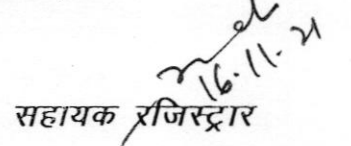 16.11.21
सहायक रजिस्ट्रार